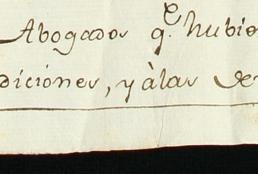 Abogados q.e hubie
diciones, y àlas de